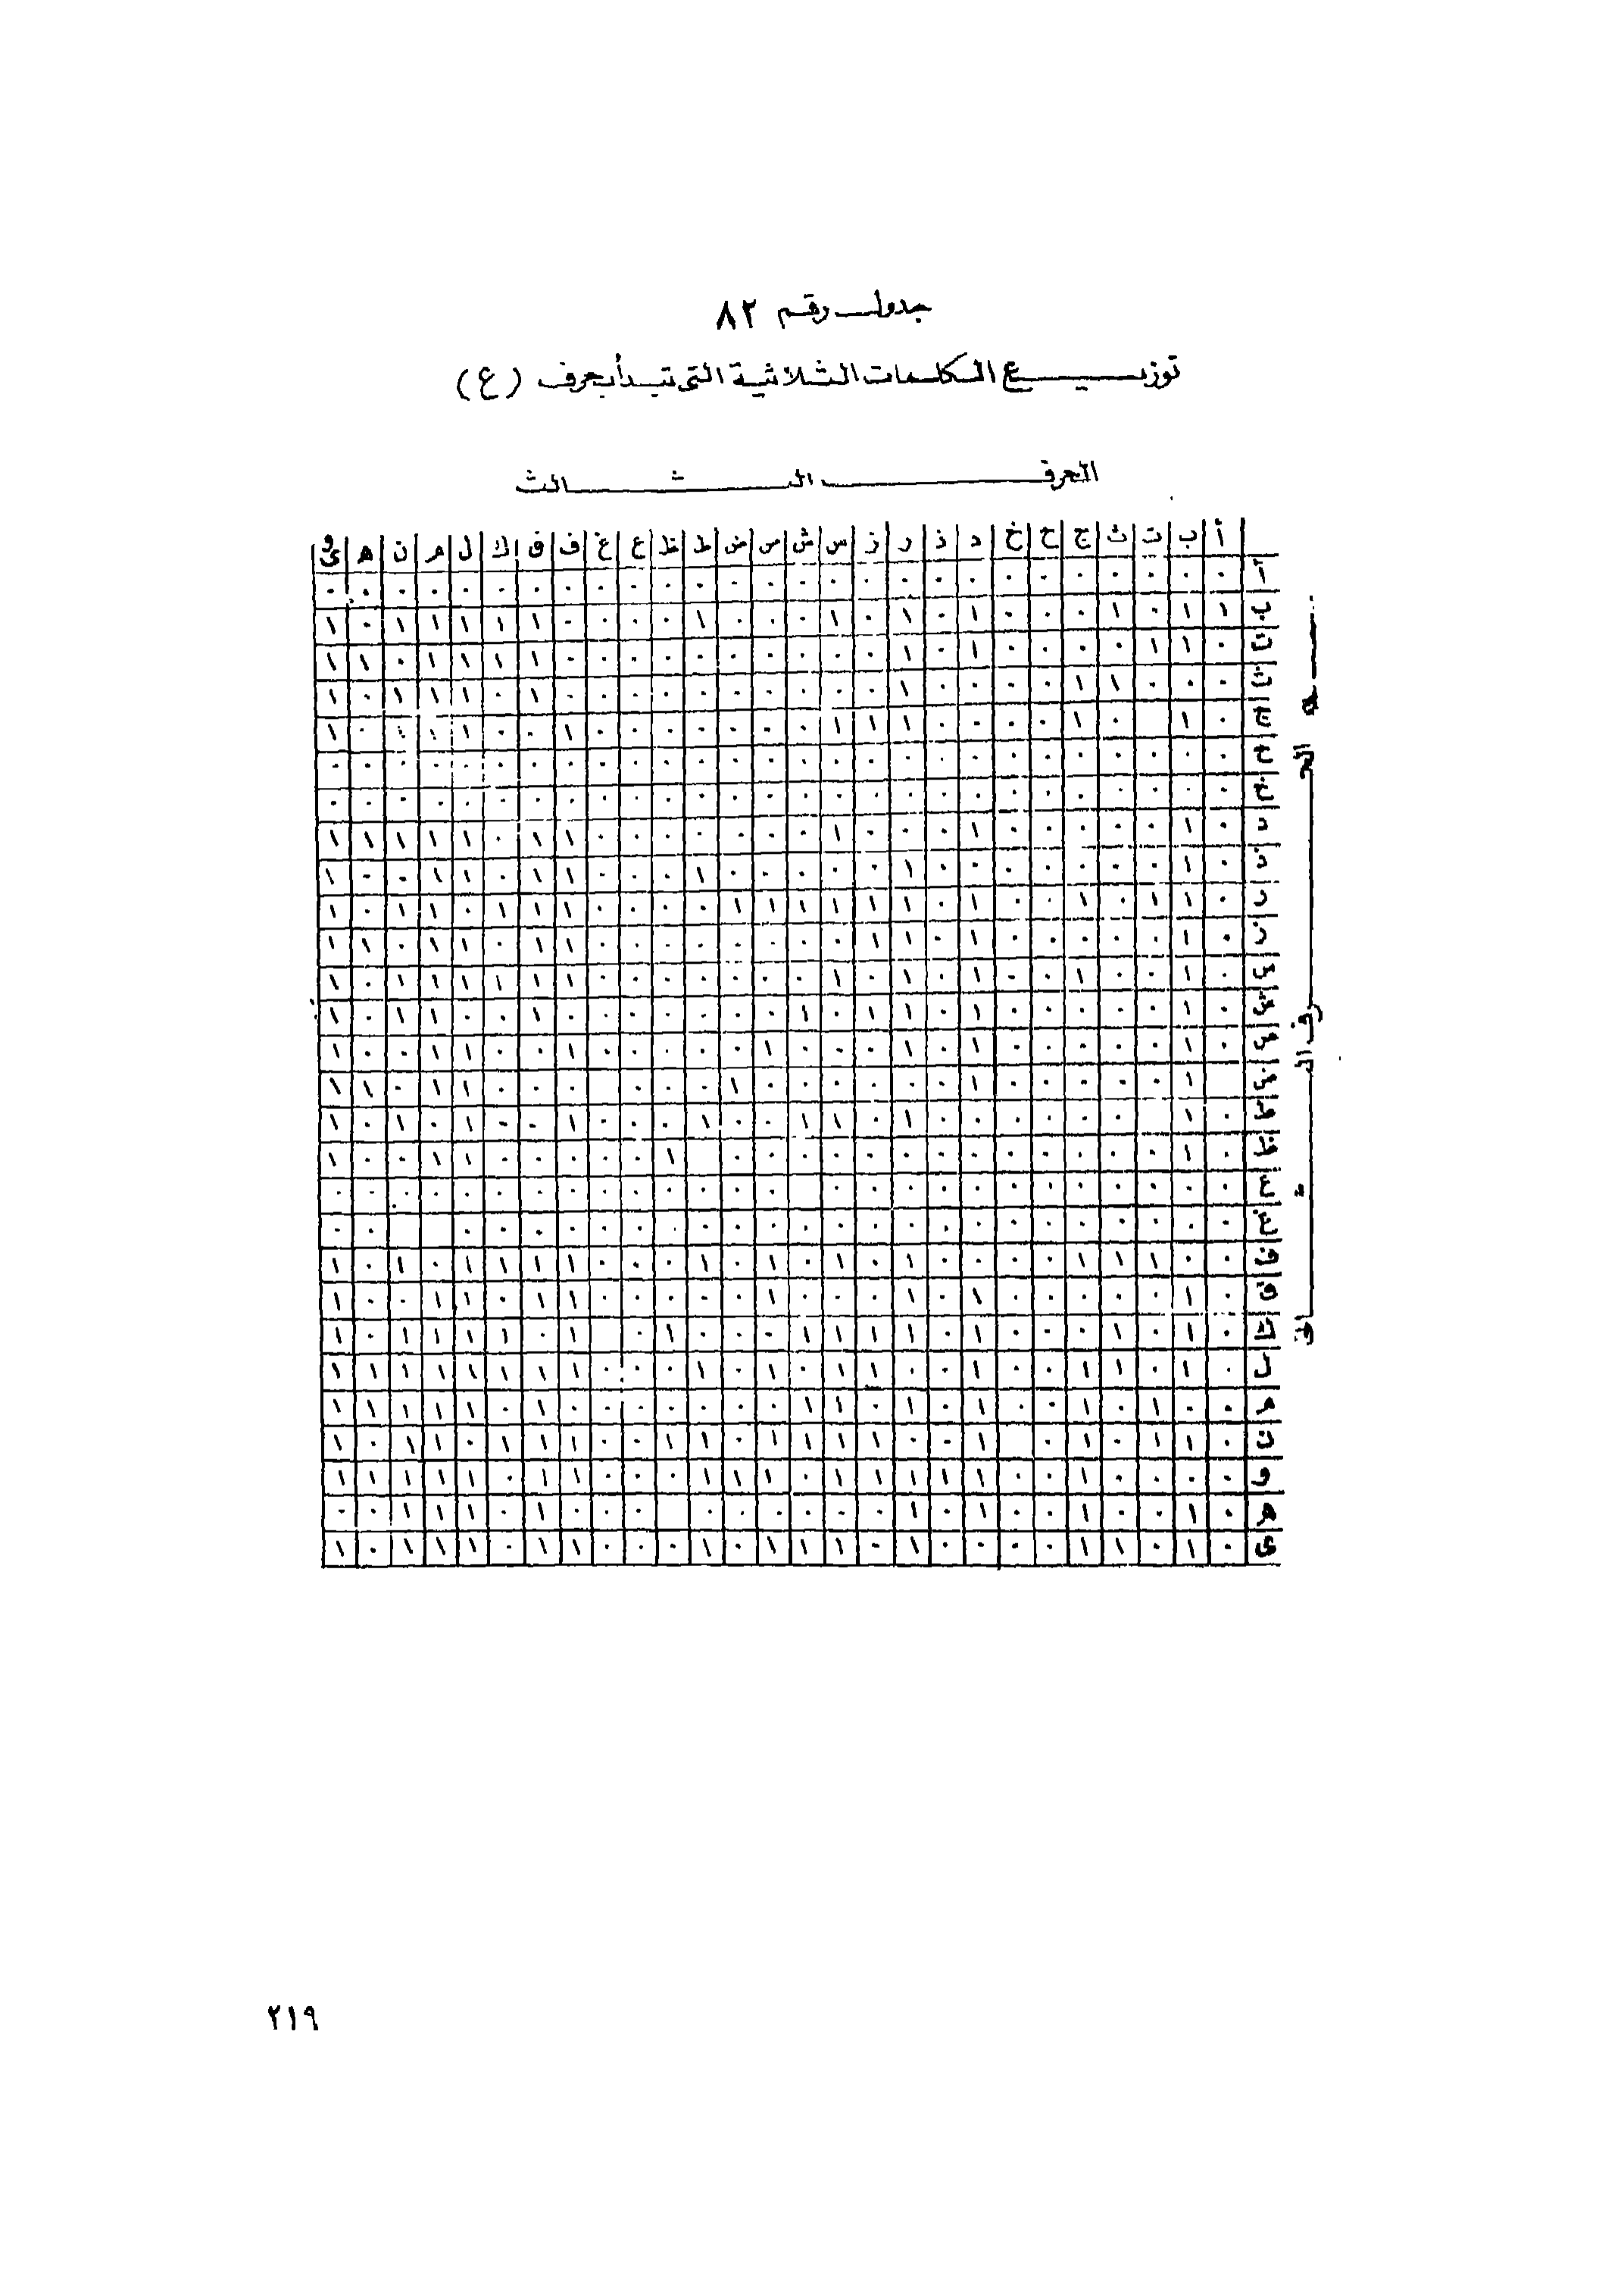 جدول رقم ٨٢
توزيع الكلمات الثلاثية التى تبدأ بحرف (ع)
الحرف الثالث
أ ب ت ث ج ح خ د ذ ر ز س ش ص ض ط ظ ع غ ف ق ك ل م ن ه وى
أ ٠ ٠ ٠ ٠ ٠ ٠ ٠ ٠ ٠ ٠ ٠ ٠ ٠ ٠ ٠ ٠ ٠ ٠ ٠ ٠ ٠ ٠ ٠ ٠ ٠ ٠ ٠
ب ١ ١ ٠ ١ ٠ ٠ ٠ ١ ٠ ١ ٠ ١ ٠ ٠ ٠ ١ ٠ ٠ ٠ ٠ ١ ١ ١ ١ ١ ٠ ١
ت ٠ ١ ١ ٠ ٠ ٠ ٠ ١ ٠ ١ ٠ ٠ ٠ ٠ ٠ ٠ ٠ ٠ ٠ ٠ ١ ١ ١ ١ ٠ ١ ١
ث ٠ ٠ ٠ ١ ١ ٠ ٠ ٠ ٠ ١ ٠ ٠ ٠ ٠ ٠ ٠ ٠ ٠ ٠ ٠ ١ ٠ ١ ١ ١ ٠ ١
ج ٠ ١ ٠ ١ ٠ ٠ ٠ ٠ ١ ١ ١ ٠ ٠ ٠ ٠ ٠ ٠ ٠ ١ ٠ ٠ ١ ١ ١ ٠ ١
ح ٠ ٠ ٠ ٠ ٠ ٠ ٠ ٠ ٠ ٠ ٠ ٠ ٠ ٠ ٠ ٠ ٠ ٠ ٠ ٠ ٠ ٠ ٠ ٠ ٠ ٠ ٠
خ ٠ ٠ ٠ ٠ ٠ ٠ ٠ ٠ ٠ ٠ ٠ ٠ ٠ ٠ ٠ ٠ ٠ ٠ ٠ ٠ ٠ ٠ ٠ ٠ ٠ ٠ ٠
د ٠ ١ ٠ ٠ ٠ ٠ ٠ ١ ٠ ٠ ٠ ١ ٠ ٠ ٠ ٠ ٠ ٠ ٠ ١ ١ ٠ ١ ١ ١ ١ ١
ذ ٠ ١ ٠ ٠ ٠ ٠ ٠ ٠ ٠ ١ ٠ ٠ ٠ ٠ ٠ ١ ٠ ٠ ٠ ١ ١ ٠ ١ ١ ٠ ٠ ١
ر ٠ ١ ١ ٠ ١ ٠ ٠ ١ ٠ ١ ١ ١ ١ ١ ١ ٠ ٠ ٠ ٠ ١ ١ ١ ٠ ١ ١ ٠ ١
ز ٠ ١ ٠ ٠ ٠ ٠ ٠ ١ ٠ ١ ١ ٠ ٠ ٠ ٠ ٠ ٠ ٠ ٠ ١ ١ ٠ ١ ١ ٠ ١ ١
س ٠ ١ ٠ ٠ ١ ٠ ٠ ١ ٠ ١ ٠ ١ ٠ ٠ ٠ ٠ ٠ ٠ ٠ ١ ١ ١ ١ ١ ١ ٠ ١
ش ٠ ١ ٠ ٠ ٠ ٠ ٠ ١ ٠ ١ ١ ٠ ١ ٠ ٠ ٠ ٠ ٠ ٠ ٠ ١ ٠ ٠ ١ ١ ٠ ١
ص ٠ ١ ٠ ٠ ٠ ٠ ٠ ١ ٠ ١ ٠ ٠ ٠ ١ ٠ ٠ ٠ ٠ ٠ ١ ٠ ٠ ١ ١ ٠ ٠ ١
ض ١ ٠ ٠ ٠ ٠ ٠ ١ ٠ ٠ ٠ ٠ ٠ ٠ ١ ٠ ٠ ٠ ٠ ٠ ٠ ٠ ١ ١ ٠ ١ ١
ط ٠ ١ ٠ ٠ ٠ ٠ ٠ ٠ ١ ٠ ١ ١ ٠ ٠ ١ ٠ ٠ ٠ ١ ٠ ٠ ١ ٠ ١ ٠ ١
ظ ٠ ١ ٠ ٠ ٠ ٠ ٠ ٠ ٠ ٠ ٠ ٠ ٠ ٠ ٠ ١ ٠ ٠ ٠ ٠ ٠ ١ ١ ٠ ٠ ١
ع ٠ ٠ ٠ ٠ ٠ ٠ ٠ ٠ ٠ ٠ ٠ ٠ ٠ ٠ ٠ ٠ ٠ ٠ ٠ ٠ ٠ ٠ ٠ ٠ ٠ ٠
غ ٠ ٠ ٠ ٠ ٠ ٠ ٠ ٠ ٠ ٠ ٠ ٠ ٠ ٠ ٠ ٠ ٠ ٠ ٠ ٠ ٠ ٠ ٠ ٠ ٠
ف ٠ ٠ ١ ١ ١ ٠ ٠ ٠ ٠ ١ ٠ ١ ٠ ١ ٠ ١ ٠ ٠ ٠ ١ ١ ١ ١ ٠ ١ ٠ ١
ق ٠ ١ ٠ ٠ ٠ ٠ ٠ ١ ٠ ١ ٠ ٠ ٠ ١ ٠ ٠ ٠ ٠ ٠ ١ ١ ٠ ١ ١ ٠ ٠ ١
ك ٠ ١ ٠ ١ ٠ ٠ ٠ ١ ٠ ١ ١ ١ ١ ٠ ٠ ٠ ١ ٠ ١ ٠ ١ ١ ١ ١ ٠ ١
ل ٠ ١ ٠ ١ ١ ٠ ٠ ١ ٠ ٠ ١ ١ ٠ ١ ٠ ١ ٠ ٠ ٠ ١ ١ ١ ١ ١ ١ ١ ١
م ٠ ٠ ١ ٠ ١ ٠ ٠ ١ ٠ ١ ٠ ١ ١ ٠ ٠ ٠ ٠ ٠ ٠ ٠ ١ ٠ ١ ١ ١ ١ ١
ن ٠ ١ ١ ٠ ١ ٠ ١ ٠ ٠ ١ ١ ١ ١ ٠ ١ ١ ٠ ٠ ١ ١ ١ ٠ ١ ١ ٠ ١
و ٠ ٠ ٠ ٠ ١ ٠ ٠ ١ ١ ١ ١ ١ ٠ ١ ١ ١ ٠ ٠ ٠ ١ ١ ٠ ١ ١ ١ ١ ١
ه ٠ ١ ٠ ٠ ١ ٠ ٠ ١ ٠ ١ ٠ ٠ ٠ ٠ ٠ ٠ ٠ ٠ ٠ ١ ٠ ١ ١ ١ ٠ ٠
ى ٠ ١ ٠ ١ ١ ٠ ٠ ٠ ٠ ١ ٠ ١ ١ ١ ٠ ١ ٠ ٠ ٠ ١ ١ ٠ ١ ١ ١ ٠ ١
الحرف الثانى
٢١٩